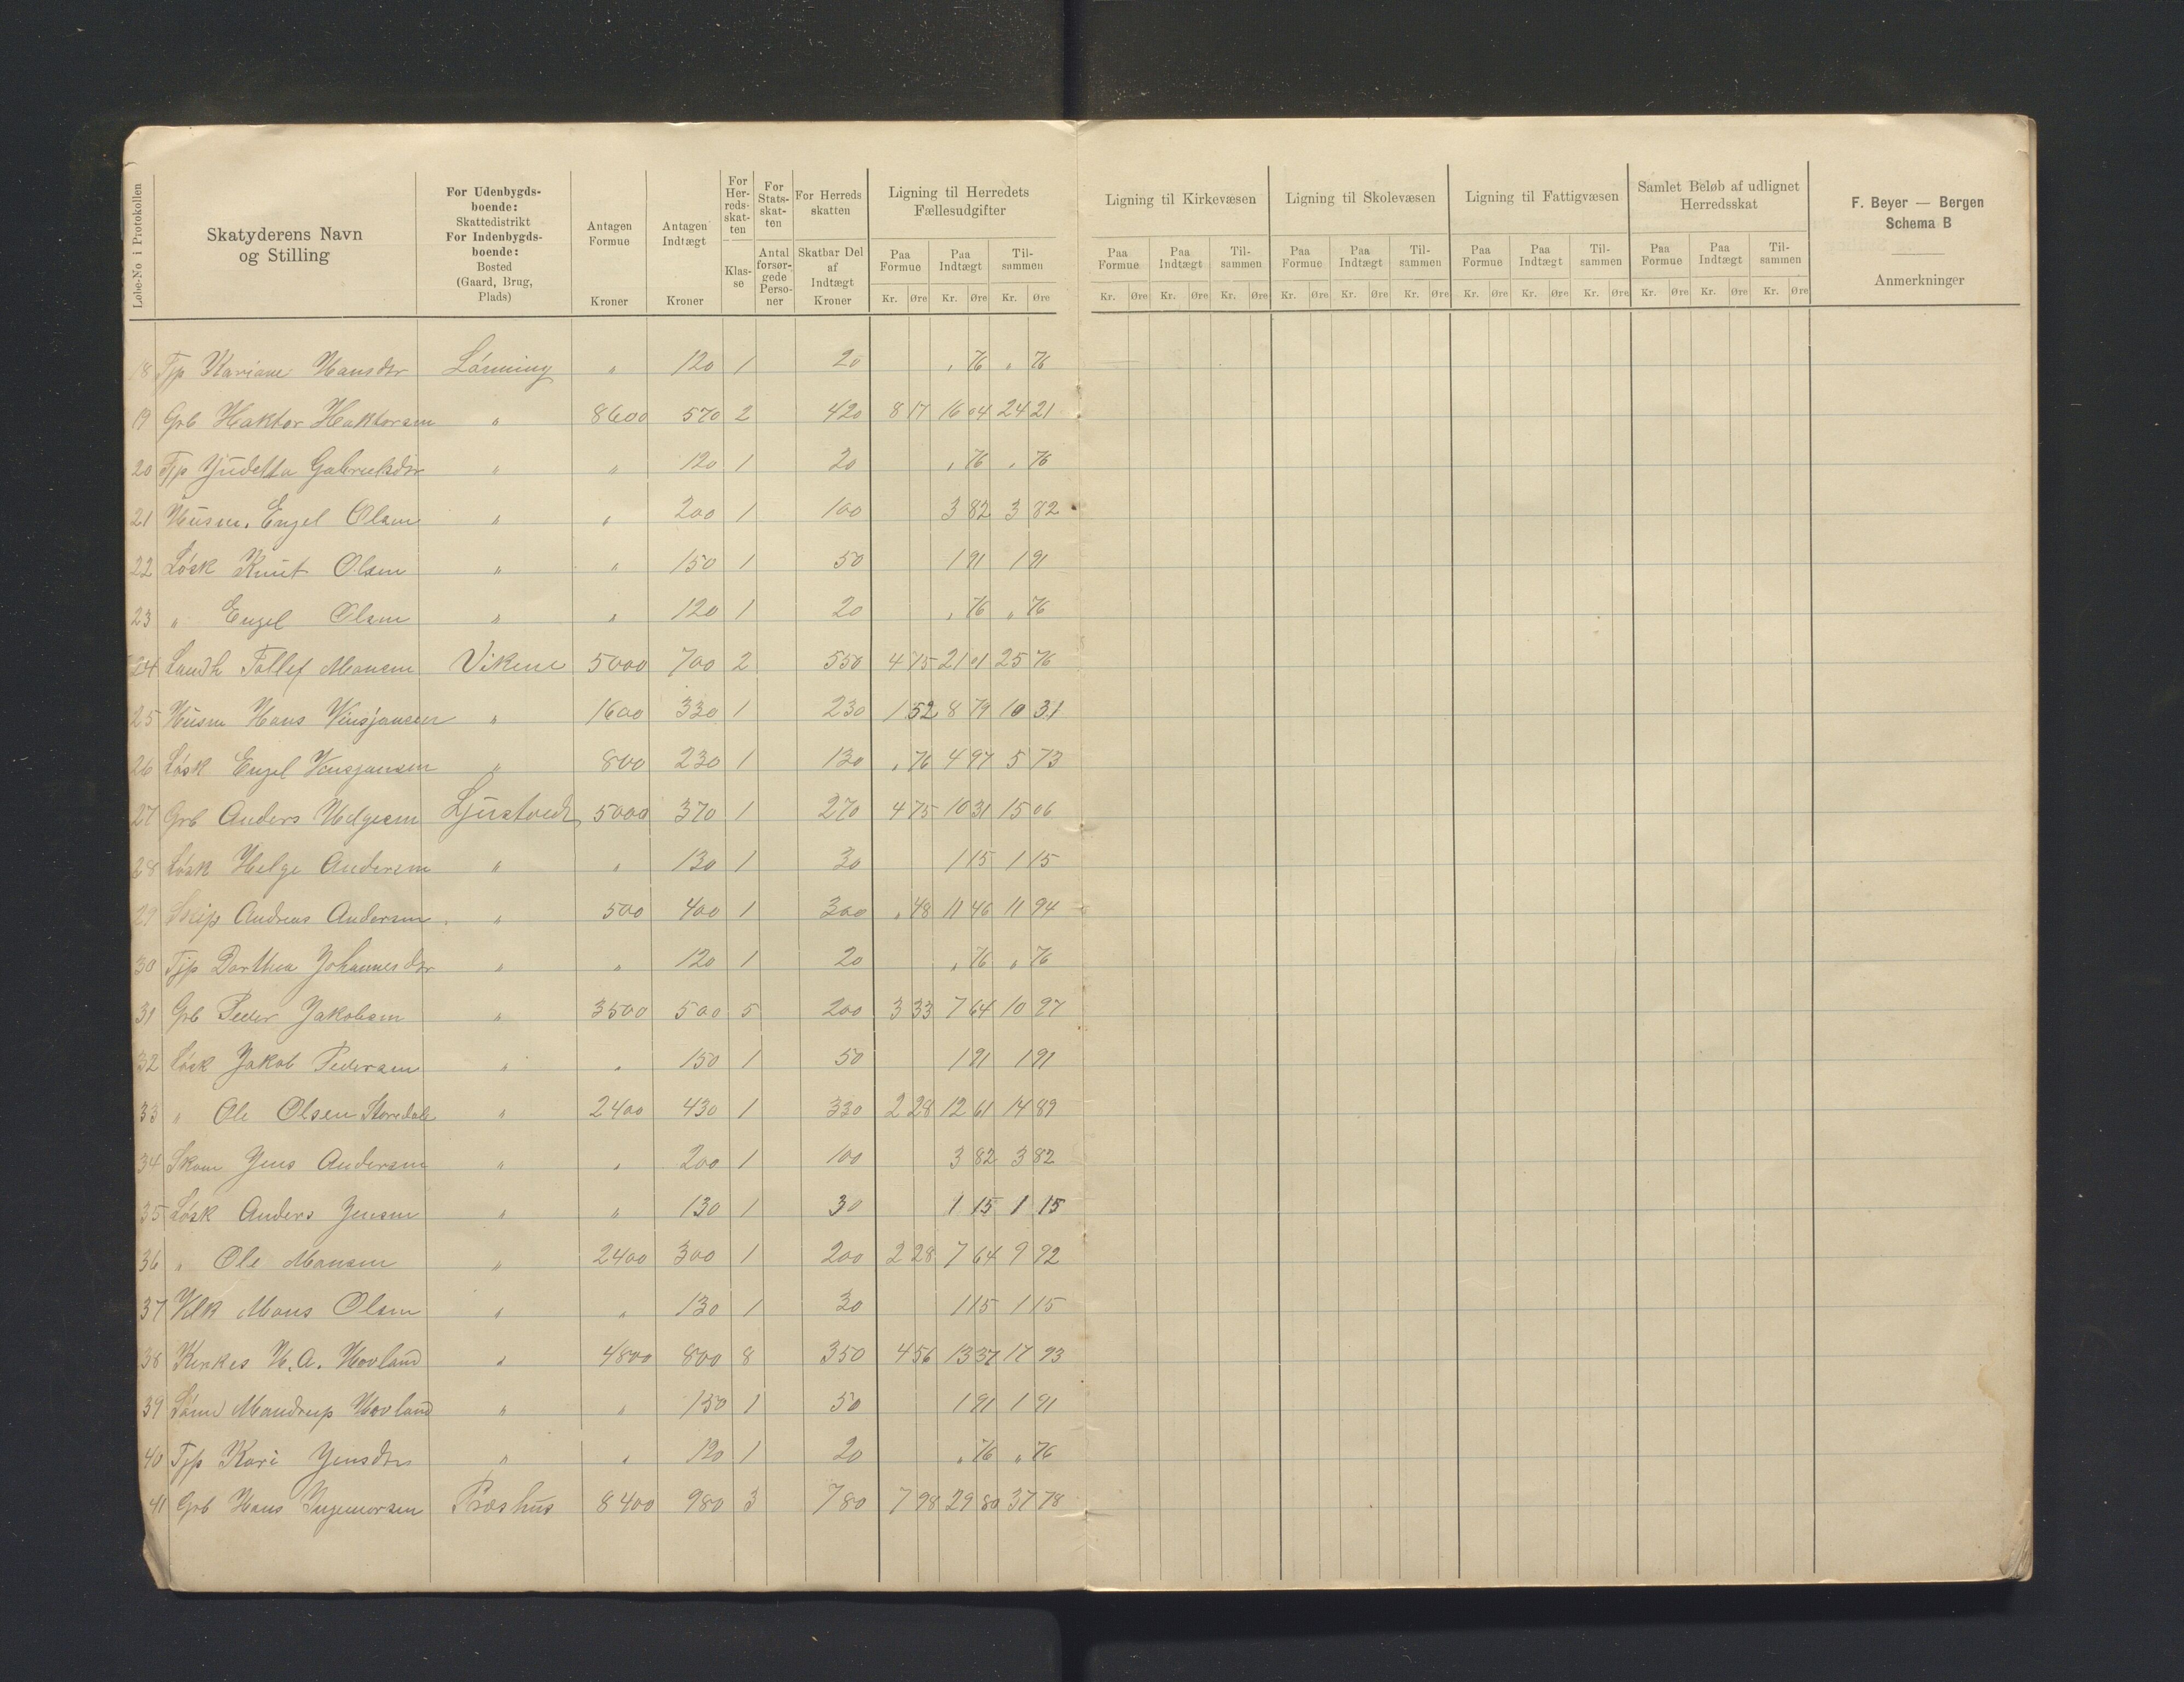 Løbe-No i Protokollen
Skatyderens Navn og Stilling
For Udenbygdsboende: Skattedistrikt For Indenbygdsboende: Bosted (Gaard, Brug, Plads)
Antagen Formue Kroner
Antagen Indtægt Kroner
For Herredsskatten Klasse
For Statsskatten Antal forsørgede Personer
For Herredsskatten Skatbar Del af Indtægt Kroner
Ligning til Herredets Fællesudgifter
Paa Formue Paa Indtægt Tilsammen
Kr. Øre Kr. Øre Kr. Øre
Ligning til Kirkevæsen
Paa Formue Paa Indtægt Tilsammen
Kr. Øre Kr. Øre Kr. Øre
Ligning til Skolevæsen
Paa Formue Paa Indtægt Tilsammen
Kr. Øre Kr. Øre Kr. Øre
Ligning til Fattigvæsen
Paa Formue Paa Indtægt Tilsammen
Kr. Øre Kr. Øre Kr. Øre
Samlet Beløb af udlignet Herredsskat
Paa Formue Paa Indtægt Tilsammen
Kr. Øre Kr. Øre Kr. Øre
F. Beyer — Bergen
Schema B
Anmerkninger
18 Tjp Mariane Hansdtr Lønning " 120 1 20 " 76 " 76
19 Grb Haktor Haktorsen " 8600 570 2 420 8 17 16 04 24 21
20 Tjp Judetta Gabrielsdtr " " 120 1 20 " 76 " 76
21 Husm. Engel Olsen " " 200 1 100 3 82 3 82
22 Løsk Knut Olsen " " 150 1 50 1 91 1 91
23 " Engel Olsen " " 120 1 20 " 76 " 76
24 Landh Tollef Monsen Vikene 5000 700 2 550 4 75 21 01 25 76
25 Husm Hans Vinsjansen " 1600 330 1 230 1 52 8 79 10 31
26 Løsk Engel Vinsjansen " 800 230 1 130 " 76 4 97 5 73
27 Grb Anders Helgesen Ljustvedt 5000 370 1 270 4 75 10 31 15 06
28 Løsk Helge Andersen " " 130 1 30 1 15 1 15
29 Skip Andreas Andersen " 500 400 1 300 " 48 11 46 11 94
30 Tjp Dorthea Johannesdtr " " 120 1 20 " 76 " 76
31 Grb Peder Jakobsen " 3500 500 5 200 3 33 7 64 10 97
32 Løsk Jakob Pedersen " " 150 1 50 1 91 1 91
33 " Ole Olsen Storedale " 2400 430 1 330 2 28 12 61 14 89
34 Skom Jens Andersen " " 200 1 100 3 82 3 82
35 Løsk Anders Jensen " " 130 1 30 1 15 1 15
36 " Ole Monsen " 2400 300 1 200 2 28 7 64 9 92
37 Mons Olsen " " 130 1 30 1 15 1 15
38 Kirkes H. A. Hovland " 4800 800 8 350 4 56 13 37 17 93
39 Mandrup Hovland " " 150 1 50 1 91 1 91
40 Tjp Kari Jensdtr " " 120 1 20 " 76 " 76
41 Grb Hans Ingemorsen Præshus 8400 980 3 780 7 98 29 80 37 78